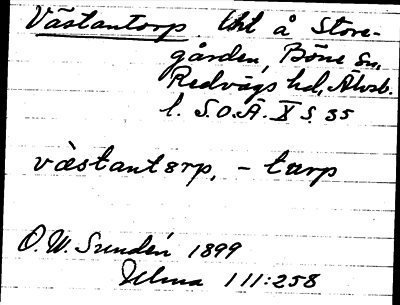 Västantorp. Uht å Store-
gården, Böne sn,
Redvägs hd, Älvsb.
l. S.O.Ä. X S. 35
västantørp, - tarp
O. W. Sundén 1899
Ulma 111:258